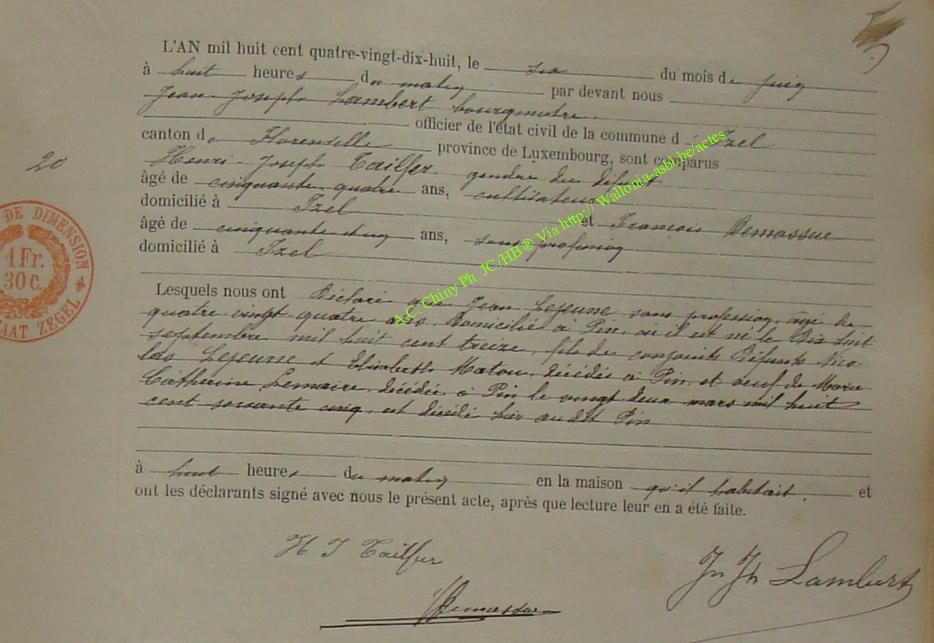 L'AN mil huit cent quatre-vingt-dix-huit, le six du mois de juin
à huit heures du matin par devant nous
Jean-Joseph Lambert bourgmestre
officier de l'état civil de la commune d' Izel
canton de Florenville province de Luxembourg, sont comparus
Henri-Joseph Tailfer gendre du défunt
20
âgé de cinquante quatre ans, cultivateur
domicilié à Izel et François Demassue
âgé de cinquante cinq ans, sans profession
domicilié à Izel
DE DIMENSION
1 Fr.
30 C.
ZEGEL
Lesquels nous ont Déclaré que Jean Lejeune sans profession, âgé de
quatre vingt quatre ans Domicilié à Pin, où il est né le Dix huit
septembre mil huit cent treize, fils de conjoints Défunts Nico-
las Lejeune et Elisabeth Maton, décédés à Pin, et veuf de Marie
Catherine Lemaire, décédée à Pin le vingt deux mars mil huit
cent soixante cinq, est décédé hier audit Pin
à huit heures du matin en la maison qu'il habitait. et
ont les déclarants signé avec nous le présent acte, après que lecture leur en a été faite.
H J Tailfer
Jn Jh Lambert
Demassue
A.C. Chiny Ph. JC/HH® Via http:// Wallonia-asbl.be/actes